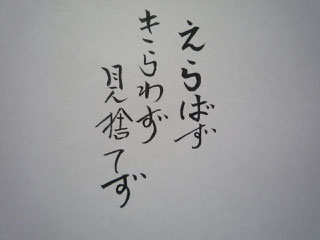 えらばず
きらわず
見捨てず